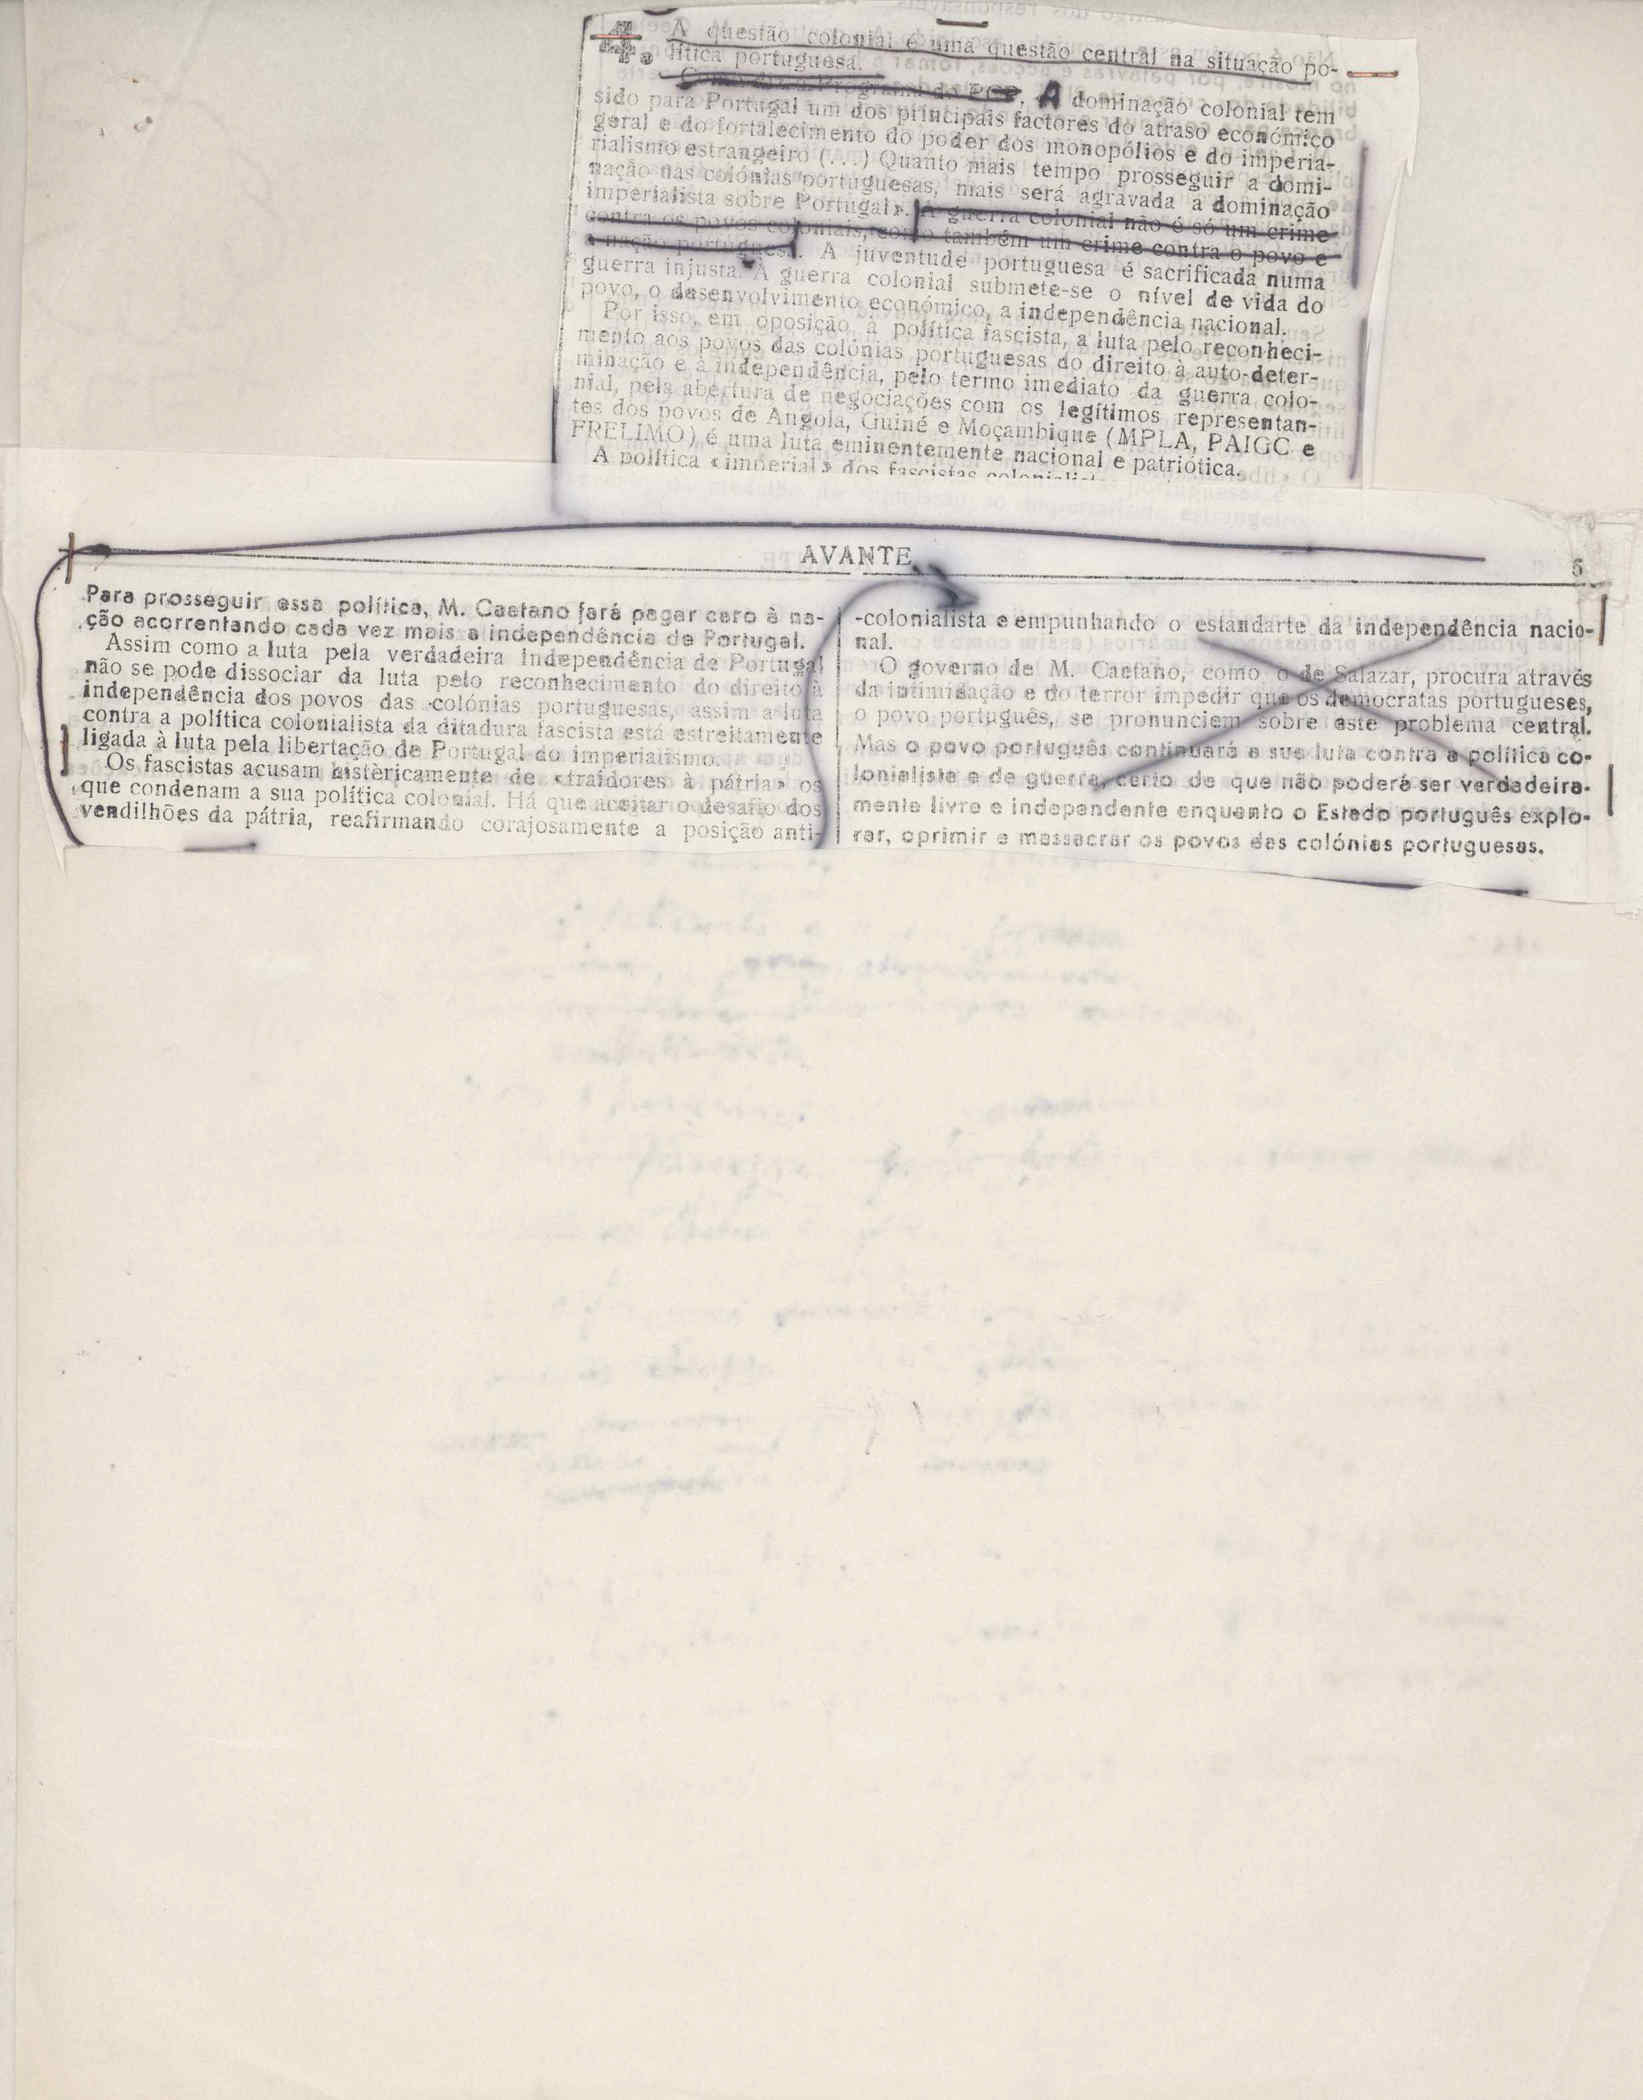 4. A questão colonial é uma questão central na situação po-
lítica portuguesa.
Como diz o Programa do PCP, A dominação colonial tem
sido para Portugal um dos principais factores do atraso económico
geral e do fortalecimento do poder dos monopólios e do imperia-
rialismo estrangeiro (...) Quanto mais tempo prosseguir a domi-
nação nas colónias portuguesas, mais será agravada a dominação
imperialista sobre Portugal». A guerra colonial não é só um crime
contra os povos coloniais, como também um crime contra o povo e
a nação portuguesa. A juventude portuguesa é sacrificada numa
guerra injusta. À guerra colonial submete-se o nível de vida do
povo, o desenvolvimento económico, a independência nacional.
Por isso, em oposição à política fascista, a luta pelo reconheci-
mento aos povos das colónias portuguesas do direito à auto-deter-
minação e à independência, pelo termo imediato da guerra colo-
nial, pela abertura de negociações com os legítimos representan-
tes dos povos de Angola, Guiné e Moçambique (MPLA, PAIGC e
FRELIMO) é uma luta eminentemente nacional e patriótica.
A política «imperial» dos fascistas
AVANTE 5
Para prosseguir essa política, M. Caetano fará pagar caro à na-
ção acorrentando cada vez mais a independência de Portugal.
Assim como a luta pela verdadeira independência de Portugal
não se pode dissociar da luta pelo reconhecimento do direito à
independência dos povos das colónias portuguesas, assim a luta
contra a política colonialista da ditadura fascista está estreitamente
ligada à luta pela libertação de Portugal do imperialismo.
Os fascistas acusam histèricamente de «traidores à pátria» os
que condenam a sua política colonial. Há que aceitar o desafio dos
vendilhões da pátria, reafirmando corajosamente a posição anti-
-colonialista e empunhando o estandarte da independência nacio-
nal.
O governo de M. Caetano, como o de Salazar, procura através
da intimidação e do terror impedir que os democratas portugueses,
o povo português, se pronunciem sobre este problema central.
Mas o povo português continuará a sua luta contra a política co-
lonialista e de guerra, certo de que não poderá ser verdadeira-
mente livre e independente enquanto o Estado português explo-
rar, oprimir e massacrar os povos das colónias portuguesas.